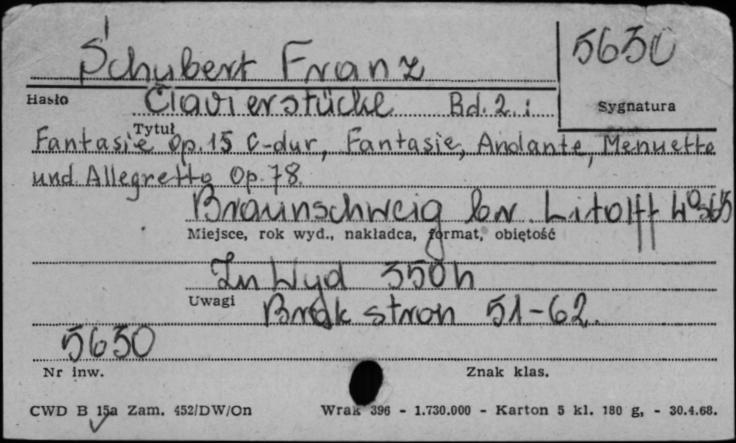 Schubert Franz 5650
Hasło Clavierstücke Bd. 2.: Sygnatura
Tytuł
Fantasie Op. 15 C-dur, Fantasie, Andante, Menuetto
und Allegretto Op. 78.
Braunschweig br. Litolff 4° S65
Miejsce, rok wyd., nakładca, format, objętość
In Wyd 350 h
Uwagi Brak stron 51-62.
5650
Nr inw. Znak klas.
CWD B 15a Zam. 452/DW/On Wrak 396 - 1.730.000 - Karton 5 kl. 180 g, - 30.4.68.